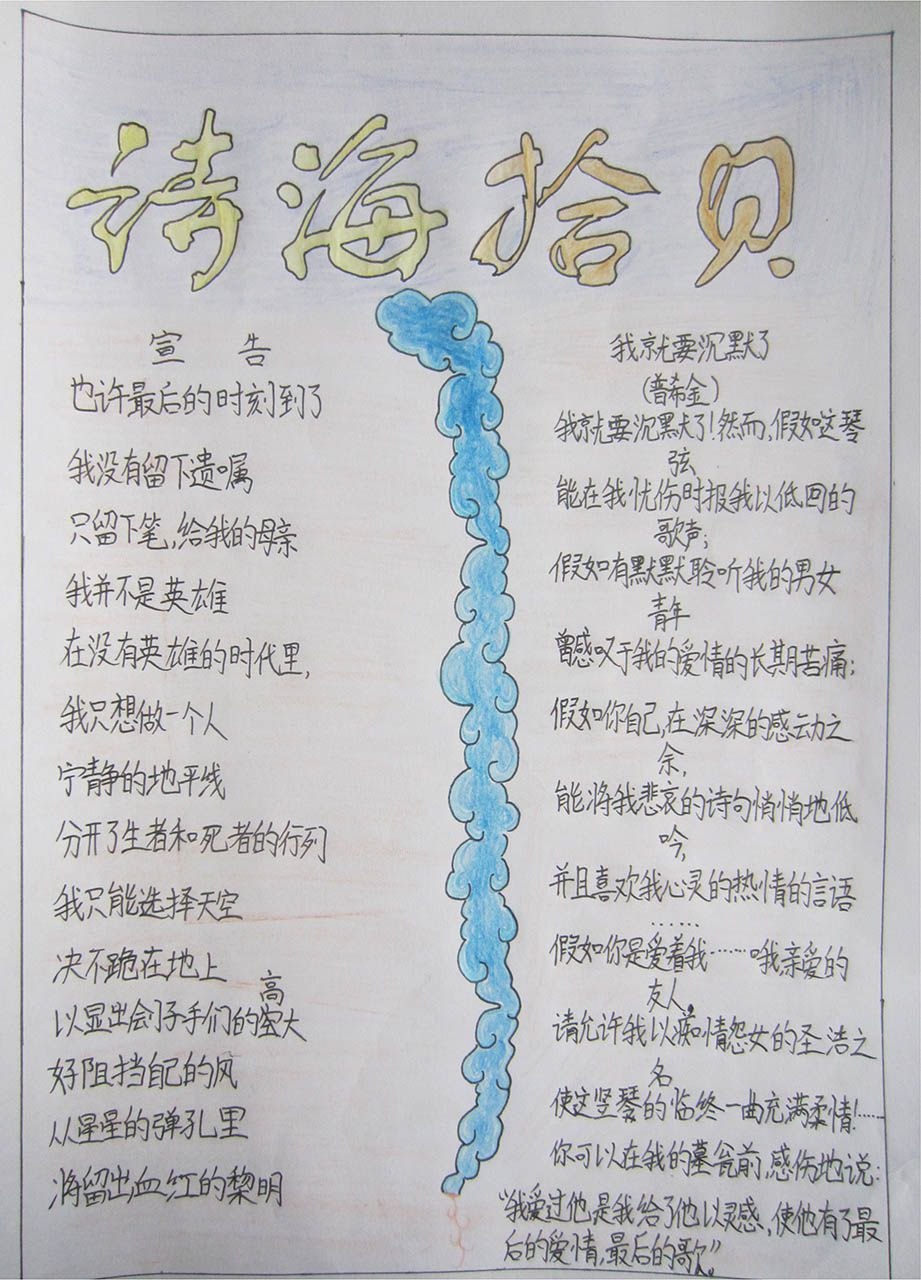 诗海拾贝
宣告
也许最后的时刻到了
我没有留下遗嘱
只留下笔,给我的母亲
我并不是英雄
在没有英雄的时代里,
我只想做一个人
宁静的地平线
分开了生者和死者的行列
我只能选择天空
决不跪在地上
以显出刽子手们的高大
好阻挡自己的风
从星星的弹孔里
将留出血红的黎明
我就要沉默了
(普希金)
我就要沉默了!然而,假如这琴
弦
能在我忧伤时报我以低回的
歌声;
假如有默默聆听我的男女
青年
曾感叹于我的爱情的长期苦痛;
假如你自己,在深深的感动之
余,
能将我悲哀的诗句悄悄地低
吟,
并且喜欢我心灵的热情的言语
……
假如你是爱着我……哦亲爱的
友人,
请允许我以痴情怨女的圣洁之
名
使这竖琴的临终一曲充满柔情!……
你可以在我的墓瓮前,感伤地说:
“我爱过他是我给了他以灵感,使他有了最
后的爱情,最后的歌。”